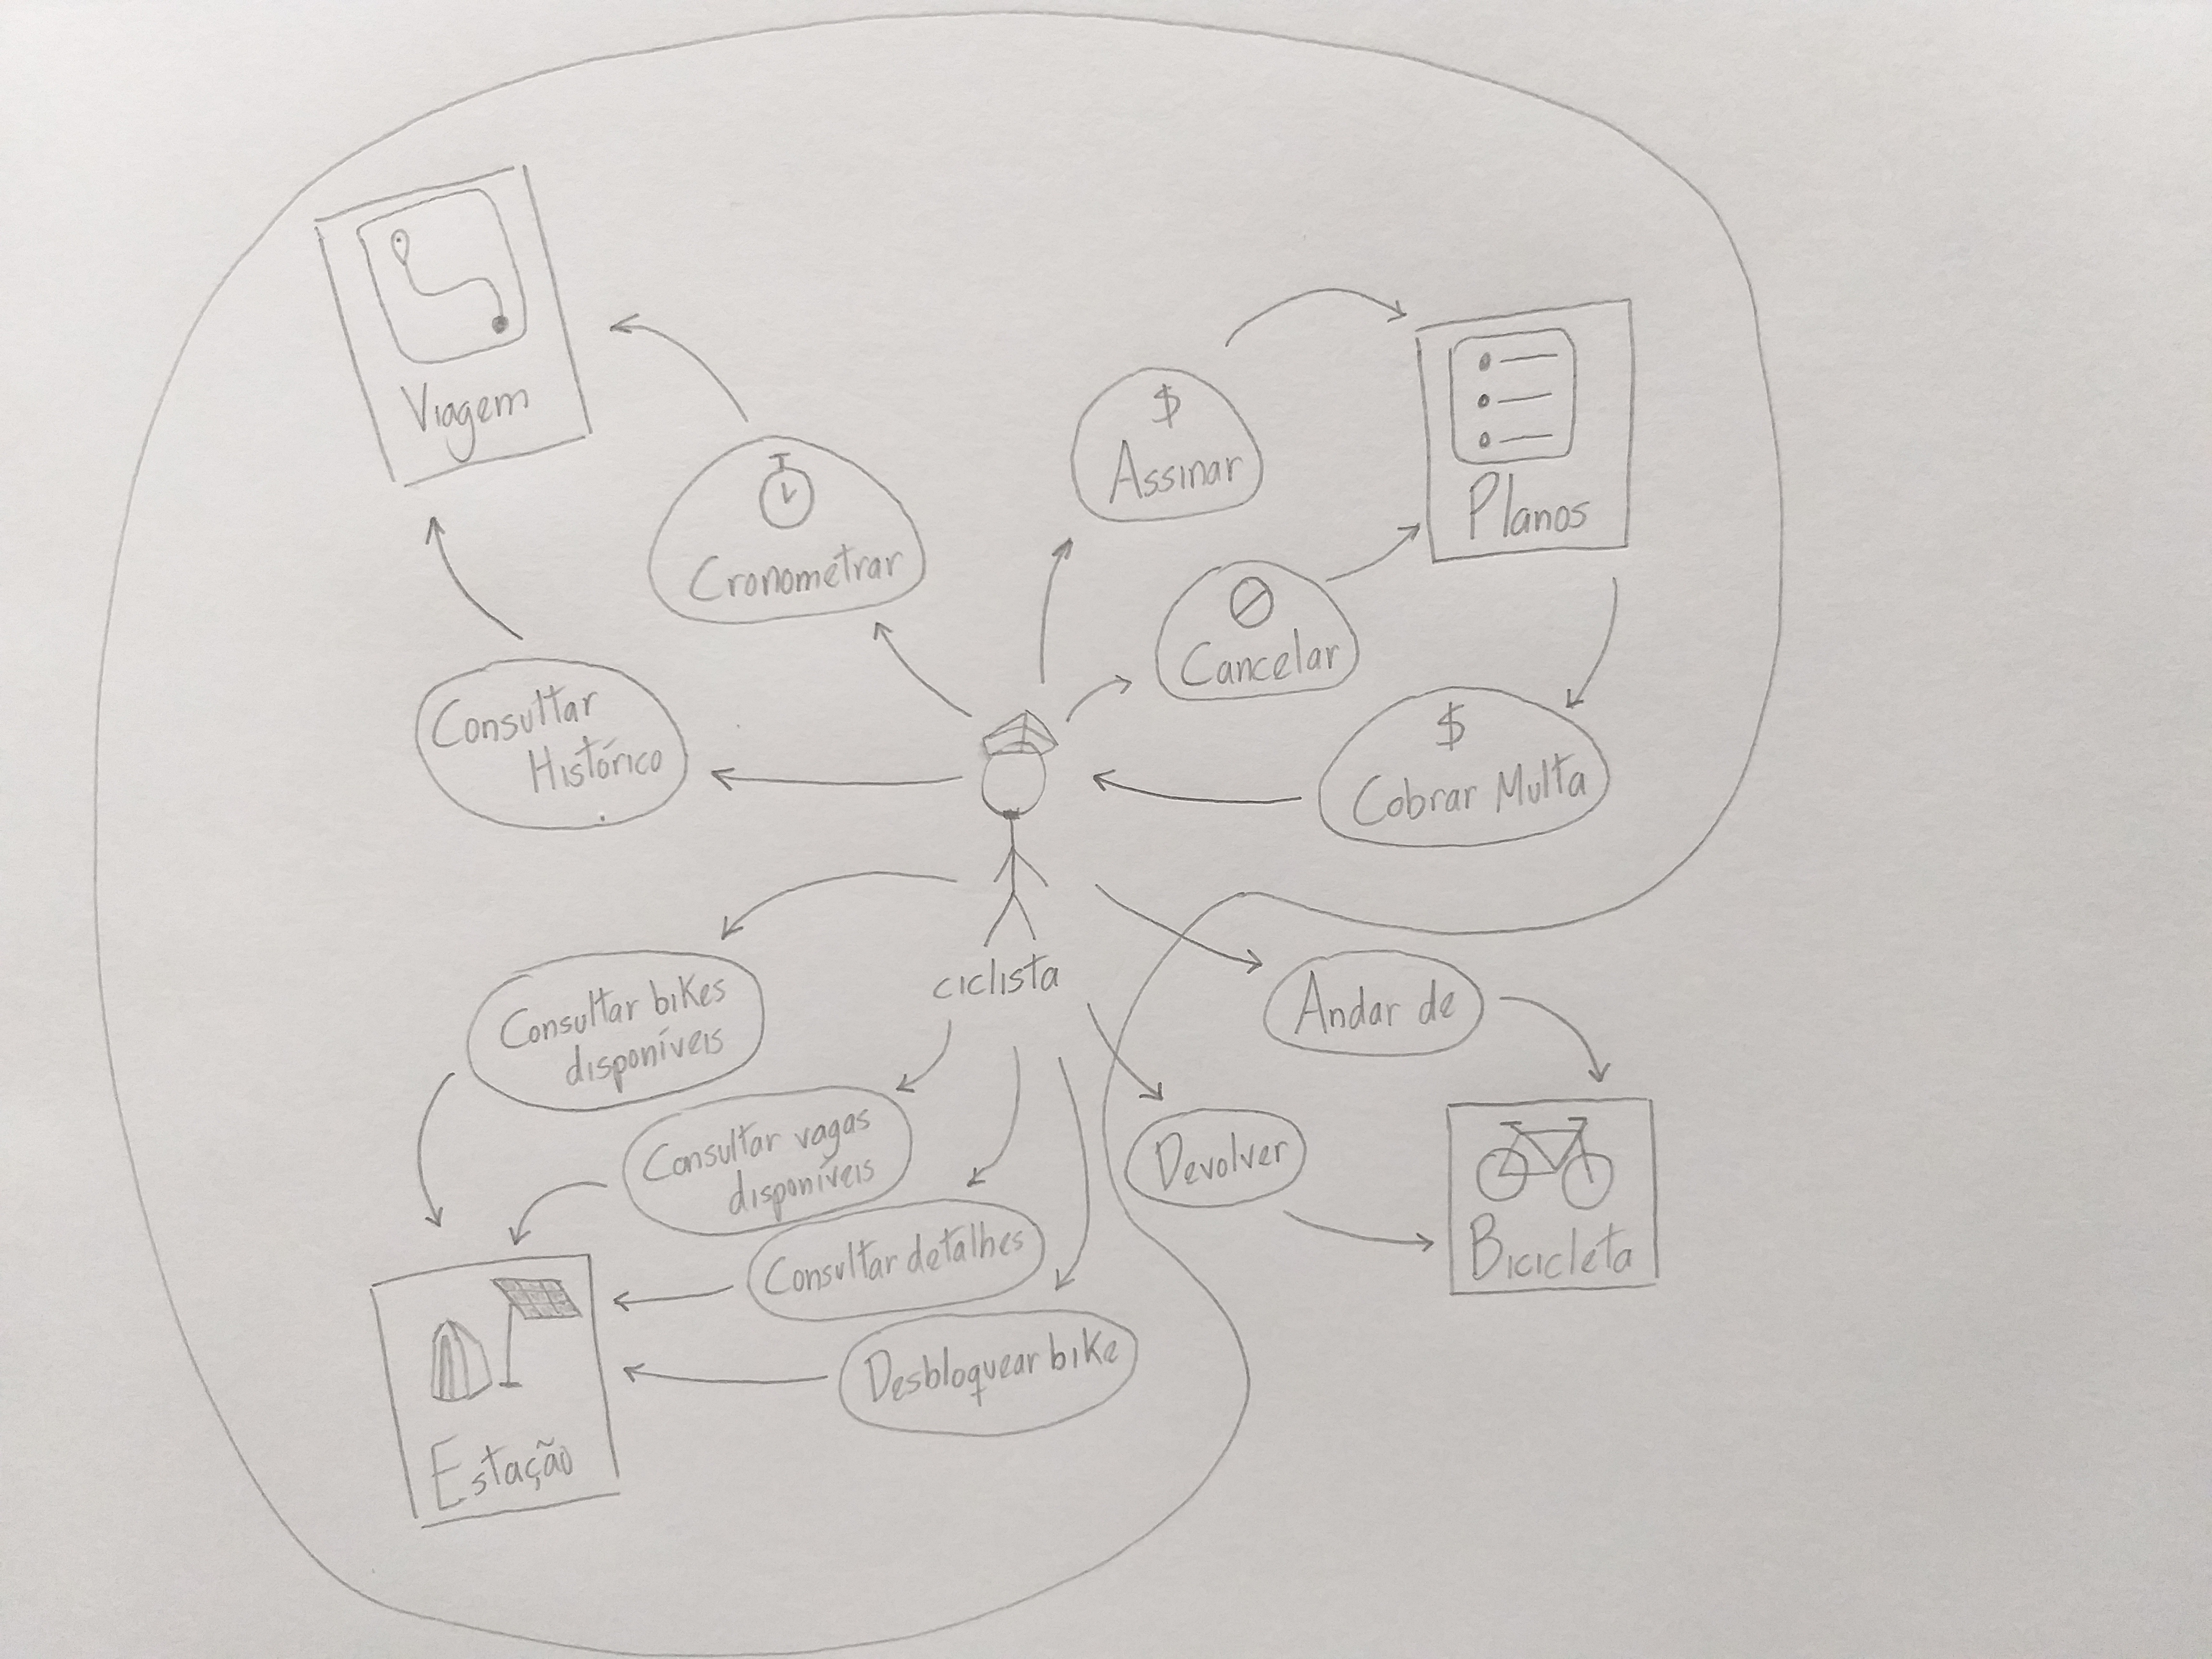 Viagem
$
Assinar
Planos
Cronometrar
Cancelar
Consultar
Histórico
$
Cobrar Multa
ciclista
Consultar bikes
disponíveis
Andar de
Consultar vagas
disponíveis
Devolver
Bicicleta
Consultar detalhes
Desbloquear bike
Estação